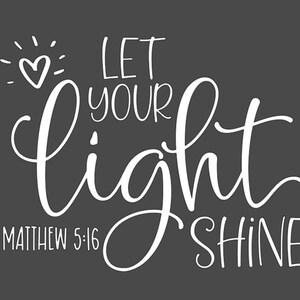 LET
YOUR
light
SHiNE
MATTHEW 5:16